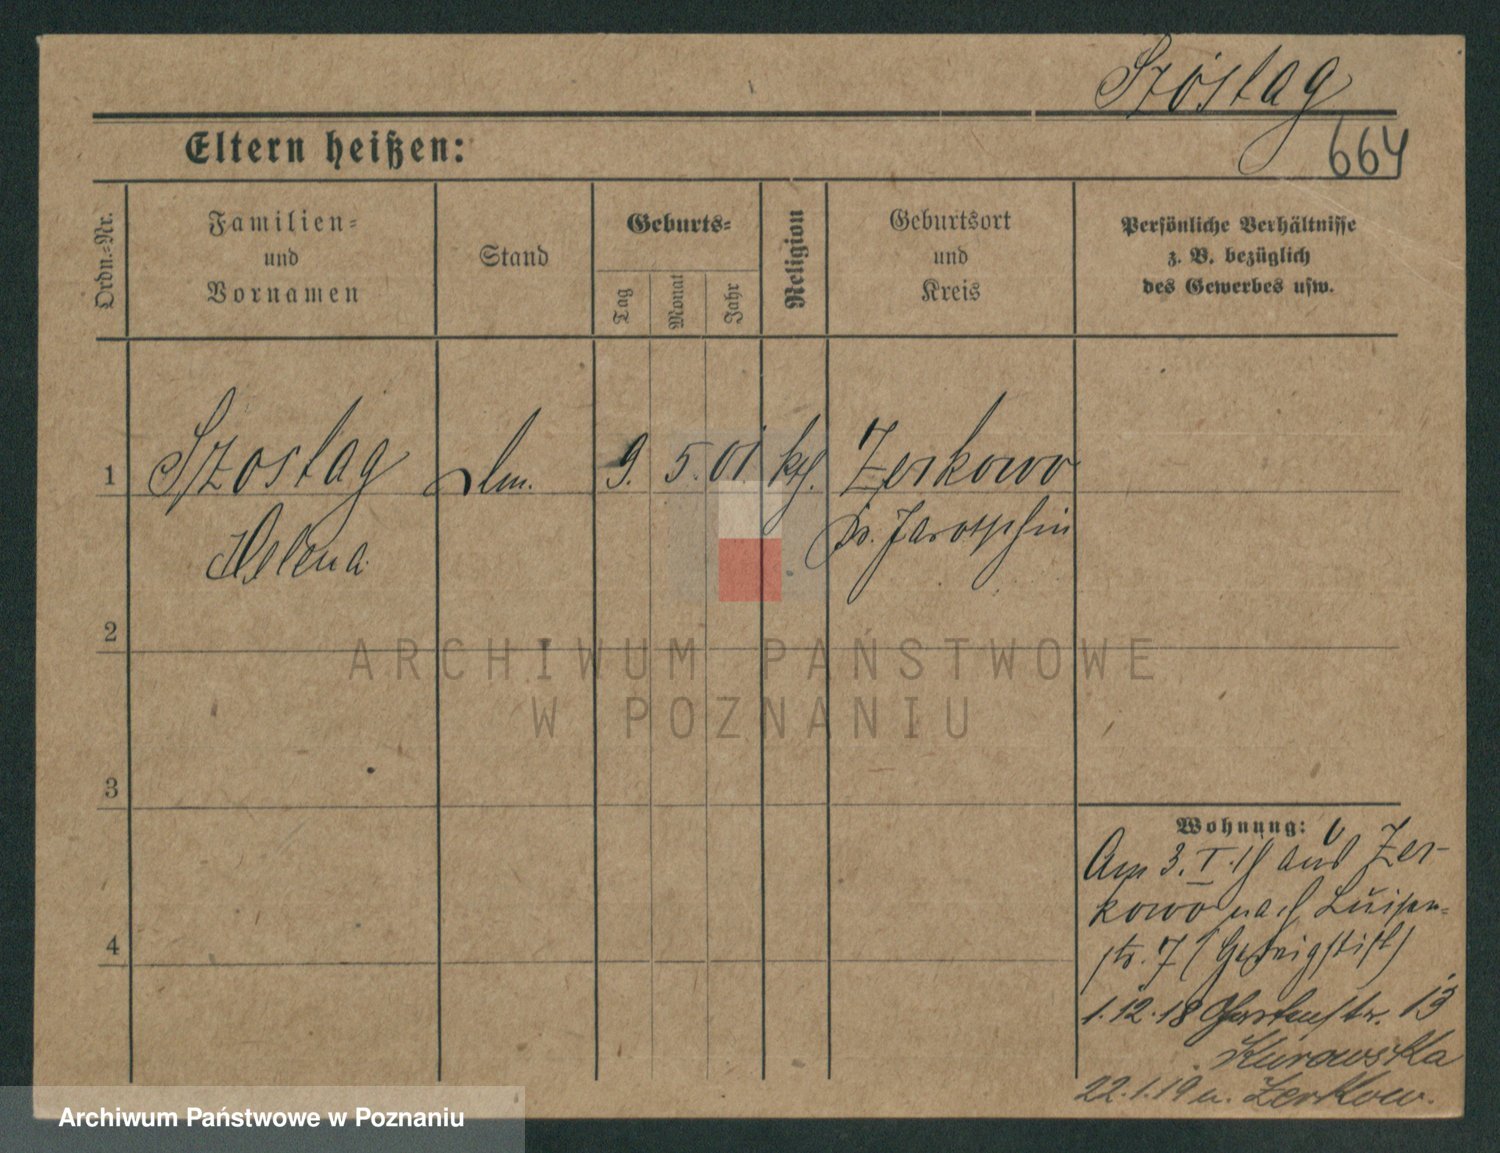 Szóstag
664
Eltern heißen:
Ordn.-Nr.
Familien-
und
Vornamen
Stand
Geburts-
Tag
Monat
Jahr
Religion
Geburtsort
und
Kreis
Persönliche Verhältnisse
z. B. bezüglich
des Gewerbes usw.
1
Szostag
9. 5. 01. kth. Zerkowo
Helena
Kr. Jarotschin
2
3
4
Wohnung:
Am 3. I. aus Zer-
kowo nach Luisen-
str. 7
1.12.18 Gartenstr. 13
Kurowska
22.1.19 n. Zerkow.
ARCHIWUM PAŃSTWOWE
W POZNANIU
Archiwum Państwowe w Poznaniu